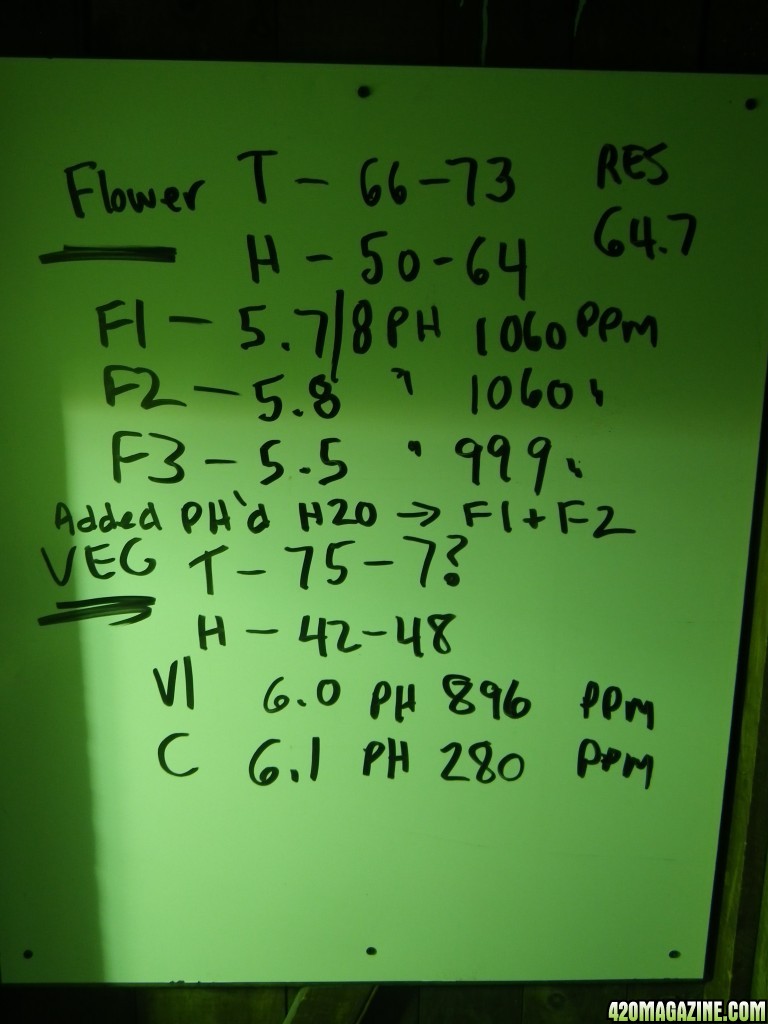 Flower T - 66-73 RES
H - 50-64 64.7
F1 - 5.7/8 PH 1060 PPM
F2 - 5.8 " 1060 "
F3 - 5.5 " 999 "
Added PH'd H20 → F1 + F2
VEG T - 75-7?
H - 42-48
V1 6.0 PH 896 PPM
C 6.1 PH 280 PPM
420MAGAZINE.COM